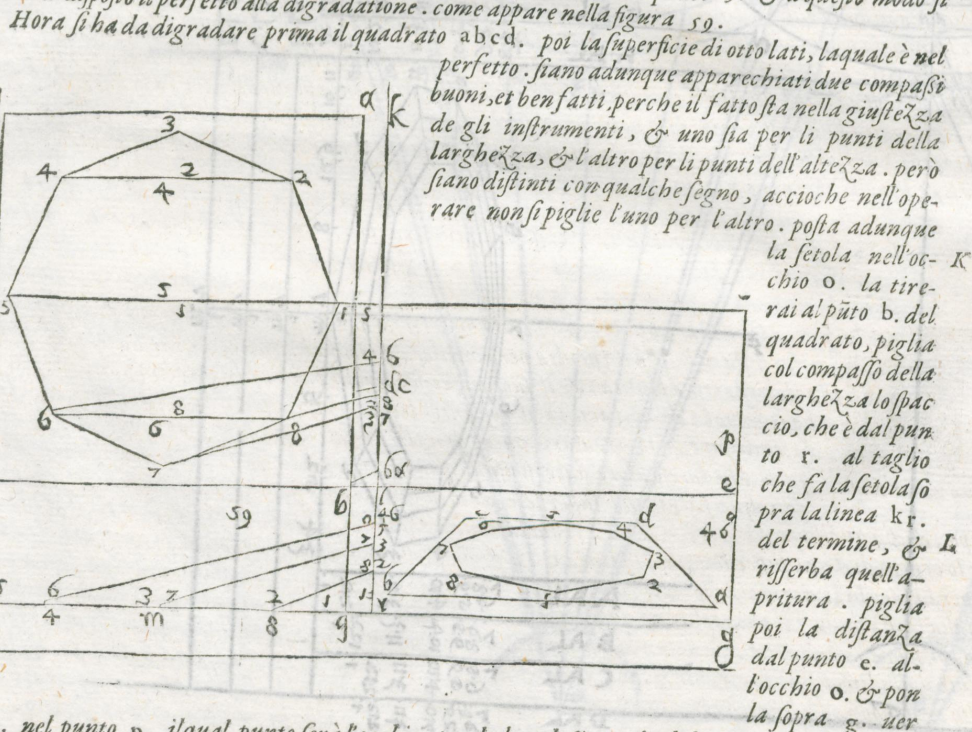 il perfetto alla digradatione. come appare nella figura 59.
Hora ſi ha da digradare prima il quadrato abcd. poi la ſuperficie di otto lati, laquale è nel
perfetto. ſiano adunque apparechiati due compaſſi
buoni, et ben fatti. perche il fatto ſta nella giuſtezza
de gli inſtrumenti, & uno ſia per li punti della
larghezza, & l'altro per li punti dell'altezza. però
ſiano diſtinti con qualche ſegno, accioche nell'ope-
rare non ſi piglie l'uno per l'altro. poſta adunque
la ſetola nell'oc- K
chio o. la tire-
rai al pũto b. del
quadrato, piglia
col compaſſo della
larghezza lo ſpac
cio, che è dal pun
to r. al taglio
che fa la ſetola ſo
pra la linea kr.
del termine, & L
riſſerba quell'a-
pritura. piglia
poi la diſtanza
dal punto e. al-
l'occhio o. & pon
la ſopra g. uer
nel punto p. ilqual punto
a k
3
4 2 2
4
5 5 1 1 5
4 6
c
6 8 6 8
7 7
p
e
b
59
6 4 3 7 m 2 8 1 q
r
6 5 4 d
7 3
8 1 2 a
4 6 8
g